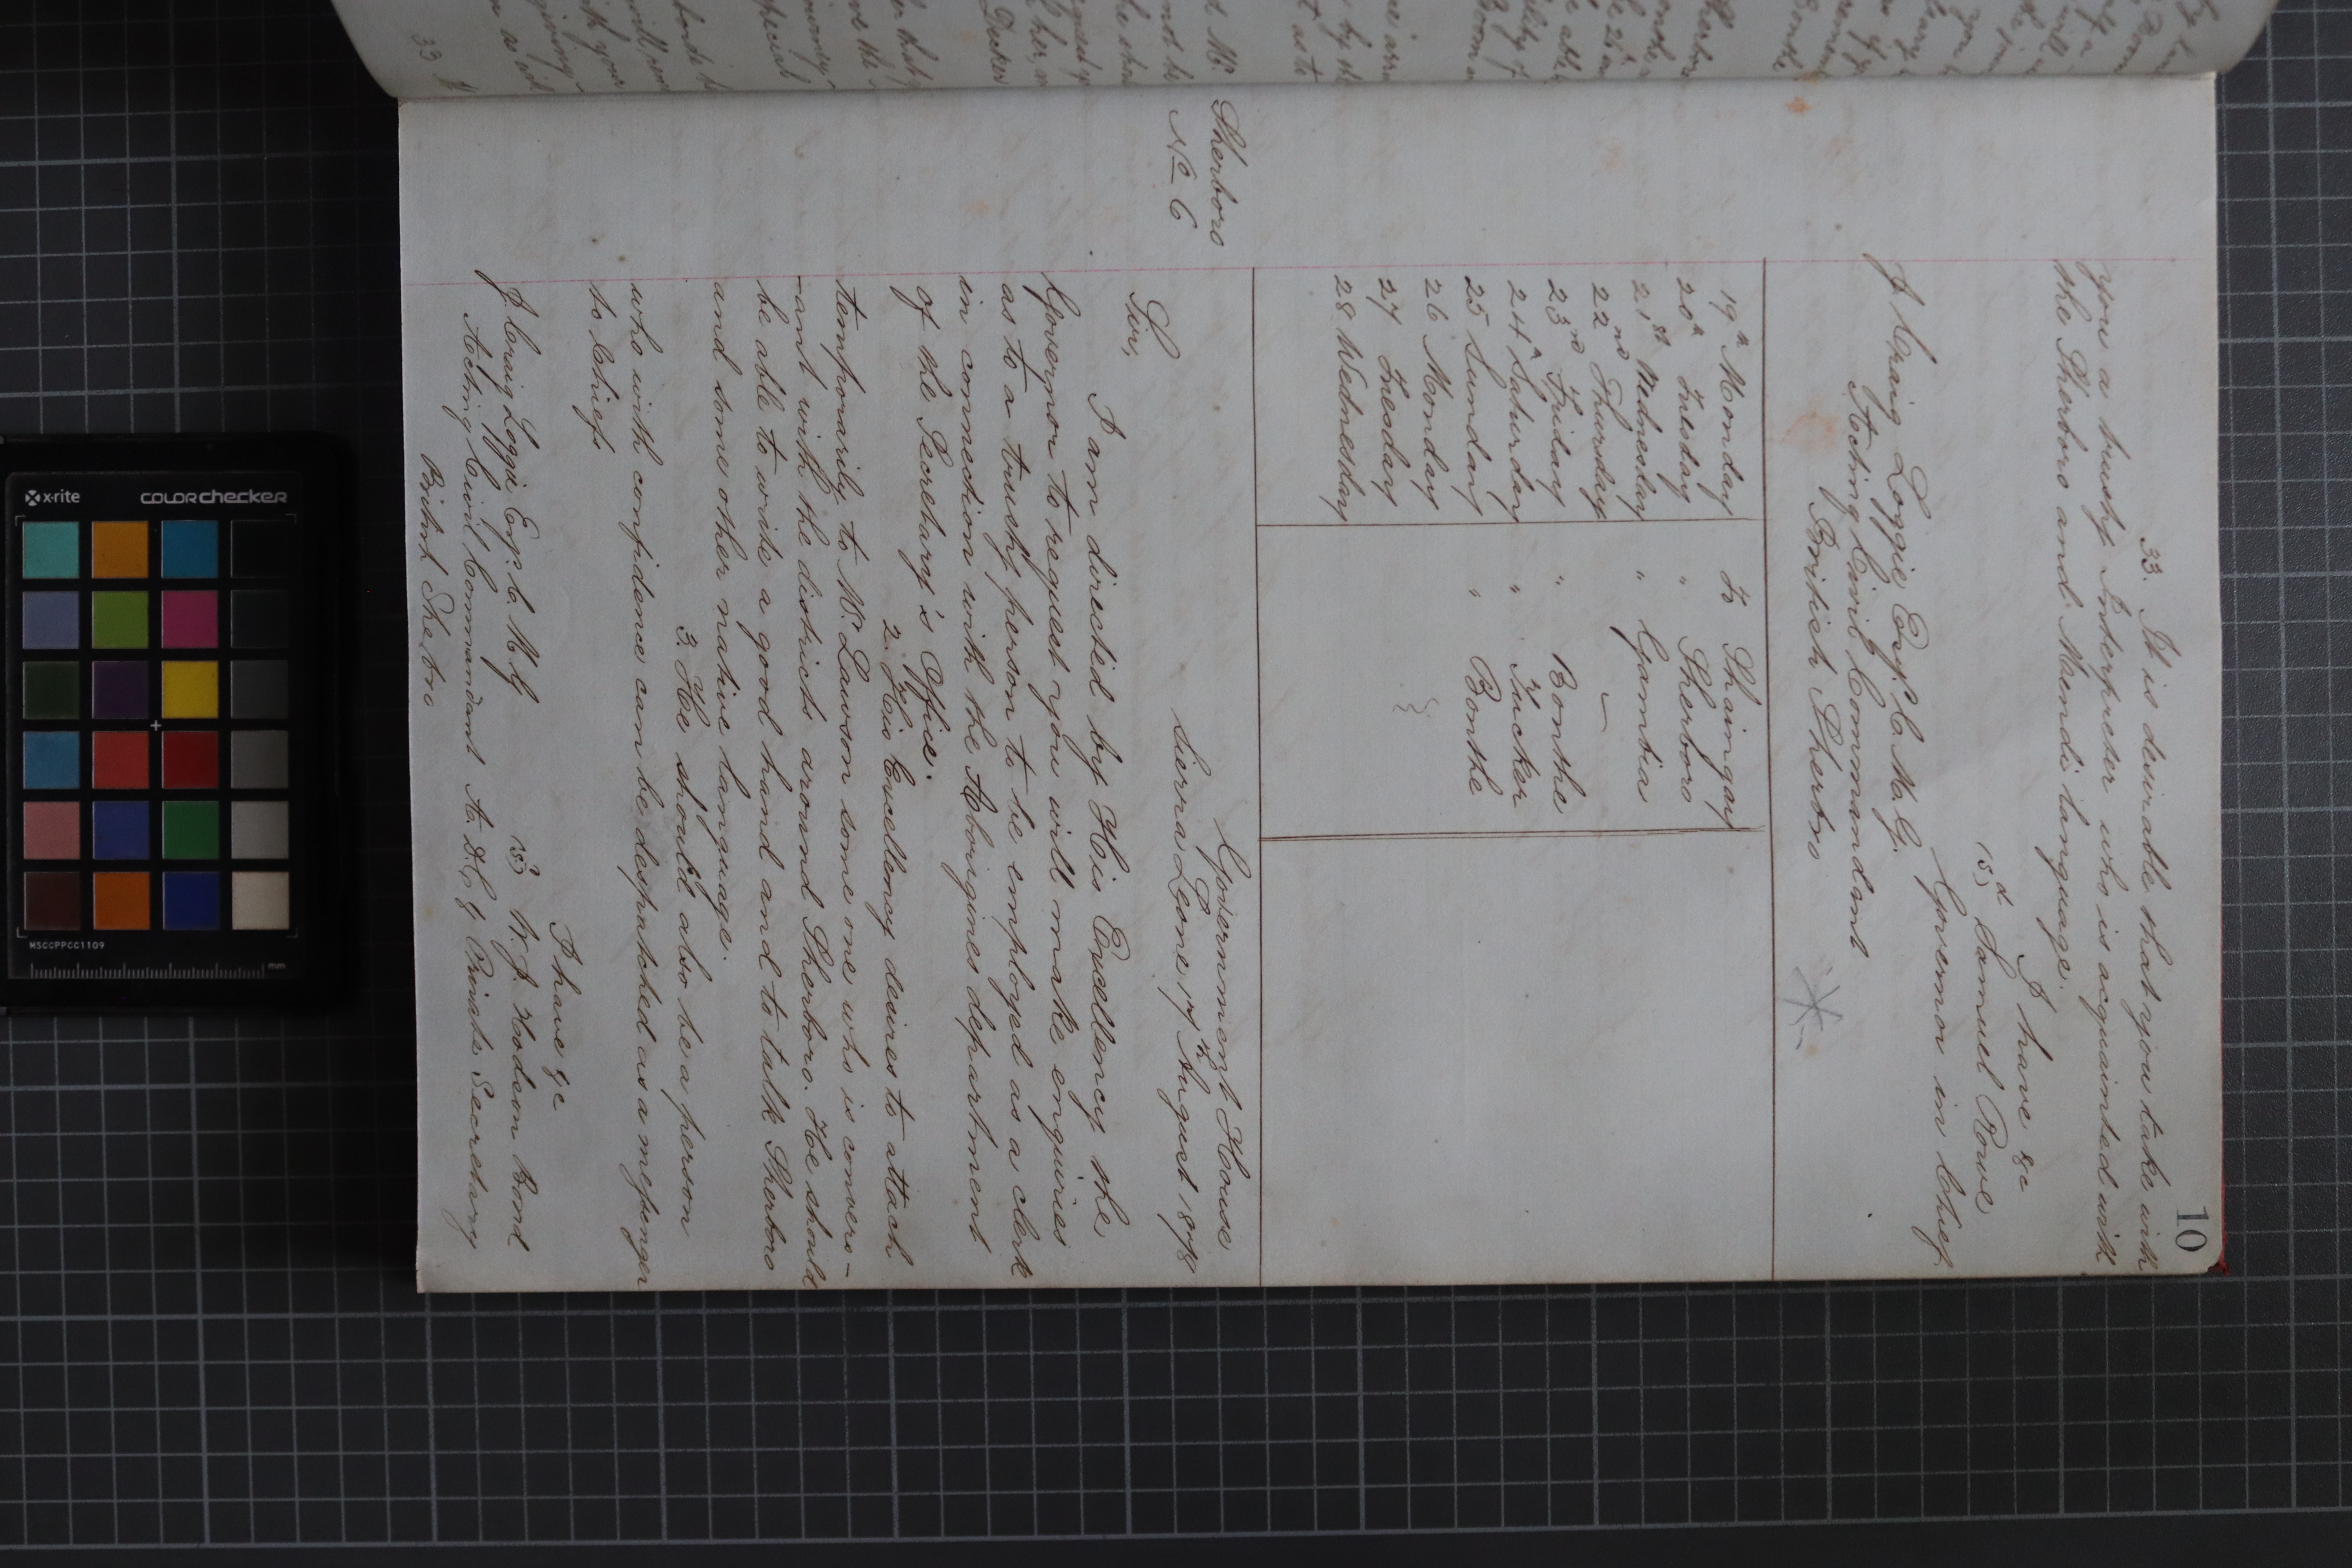 10
33. It is desirable that you take with
you a trusty Interpreter who is acquainted with
the Sherboro and Mendi language.
I have &c
(sd) Samuel Rowe
Governor in Chief
J Craig Loggie Esqr. C. M. G.
Acting Civil Commandant
British Sherbro
19th Monday To Shaingay
20th Tuesday " Sherboro
21st Wednesday " Gambia
22nd Thursday —
23rd Friday " Bonthe
24th Saturday " Tucker
25 Sunday " Bonthe
26 Monday
27 Tuesday
28 Wednesday
Sherboro
No 6
Government House
Sierra Leone 17th August 1878
Sir,
I am directed by His Excellency the
Governor to request you will make enquiries
as to a trusty person to be employed as a clerk
in connection with the Aborigines department
of the Secretary's Office.
2. His Excellency desires to attach
temporarily to Mr. Lawson some one who is convers-
-ant with the districts around Sherboro. He should
be able to write a good hand and to talk Sherboro
and some other native language.
3. He should also be a person
who with confidence can be despatched as a messenger
to Chiefs
I have &c
(sd) W. J. Hodson Bond
J. Craig Loggie Esqr. C. M. G
Acting Civil Commandant A. D. C & Private Secretary
British Sherbro
x-rite
colorchecker
MSCCPPCC1109
mm